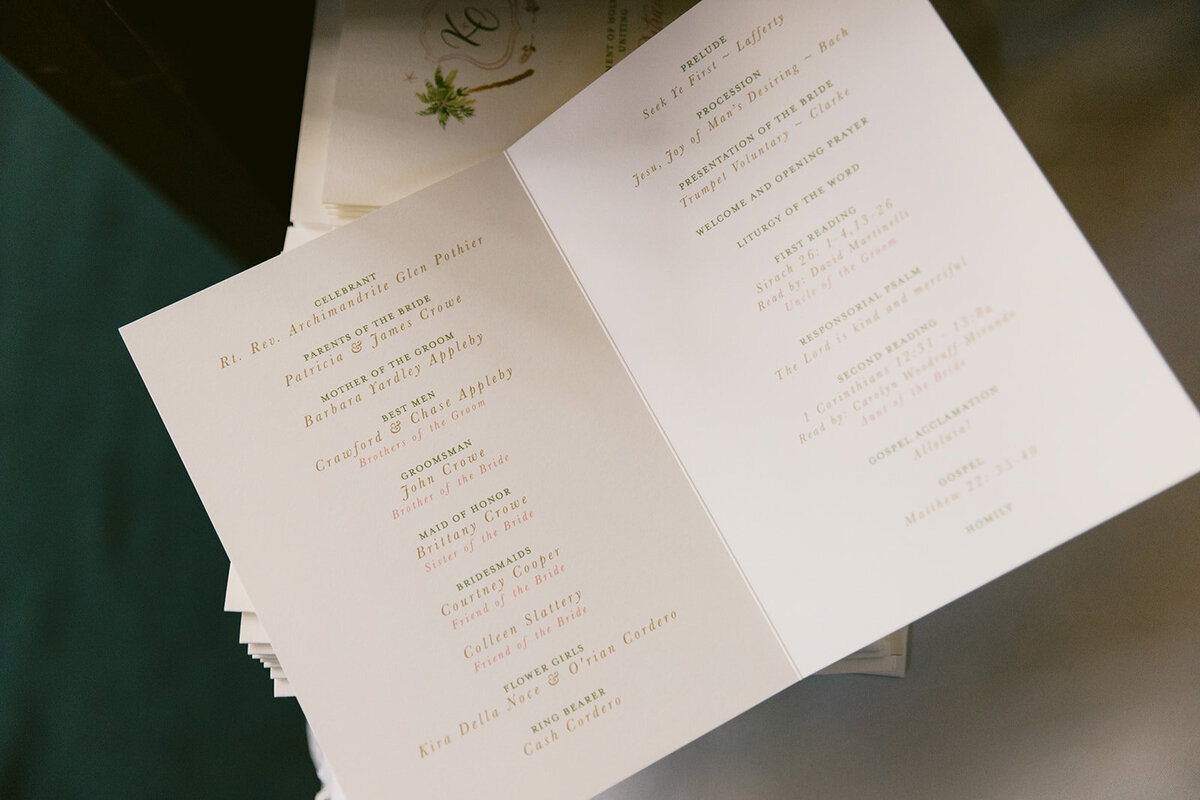 KO
MENT OF HOL
UNITING
CELEBRANT
Rt. Rev. Archimandrite Glen Pothier
PARENTS OF THE BRIDE
Patricia & James Crowe
MOTHER OF THE GROOM
Barbara Yardley Appleby
BEST MEN
Crawford & Chase Appleby
Brothers of the Groom
GROOMSMAN
John Crowe
Brother of the Bride
MAID OF HONOR
Brittany Crowe
Sister of the Bride
BRIDESMAIDS
Courtney Cooper
Friend of the Bride
Colleen Slattery
Friend of the Bride
FLOWER GIRLS
Kira Della Noce & O'rian Cordero
RING BEARER
Cash Cordero
PRELUDE
Seek Ye First ~ Lafferty
PROCESSION
Jesu, Joy of Man's Desiring ~ Bach
PRESENTATION OF THE BRIDE
Trumpet Voluntary ~ Clarke
WELCOME AND OPENING PRAYER
LITURGY OF THE WORD
FIRST READING
Sirach 26: 1-4,13-26
Read by: David Martinelli
Uncle of the Groom
RESPONSORIAL PSALM
The Lord is kind and merciful
SECOND READING
1 Corinthians 12:31 - 13:8a
Read by: Carolyn Woodruff-Miranda
Aunt of the Bride
GOSPEL ACCLAMATION
Alleluia!
GOSPEL
Matthew 22: 35-40
HOMILY